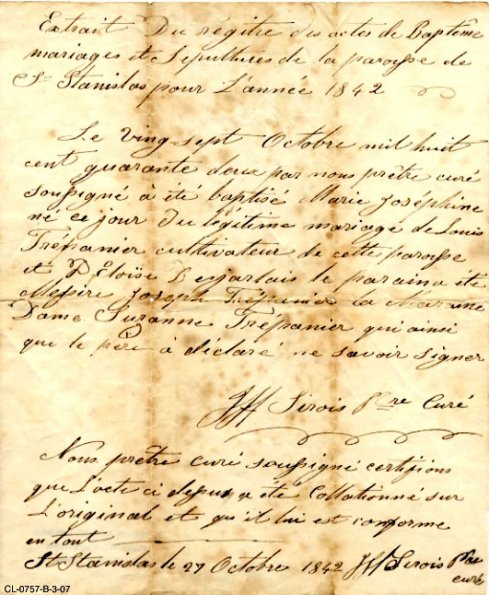 Extrait Du régitre des actes de Baptême
mariages et Sépultures de la paroisse de
St Stanislas pour L'année 1842
Le Ving-sept Octobre mil huit
cent quarante deux par nous prêtre curé
soussigné à été baptisé Marie Joséphine
né ce jour du légitime mariage de Louis
Trépanier cultivateur de cette paroisse
et D'Eloise Desjarlais le parain a été
Messire Joseph Trépanier la Maraine
Dame Suzanne Trépanier qui ainsi
que le père à déclaré ne savoir signer
Sirois Ptre Curé
Nous prêtre curé soussigné certifions
que L'acte ci dessus a été Collationné sur
L'original et qu'il lui est conforme
en tout
St Stanislas le 27 Octobre 1842 Sirois Ptre
curé
CL-0757-B-3-07